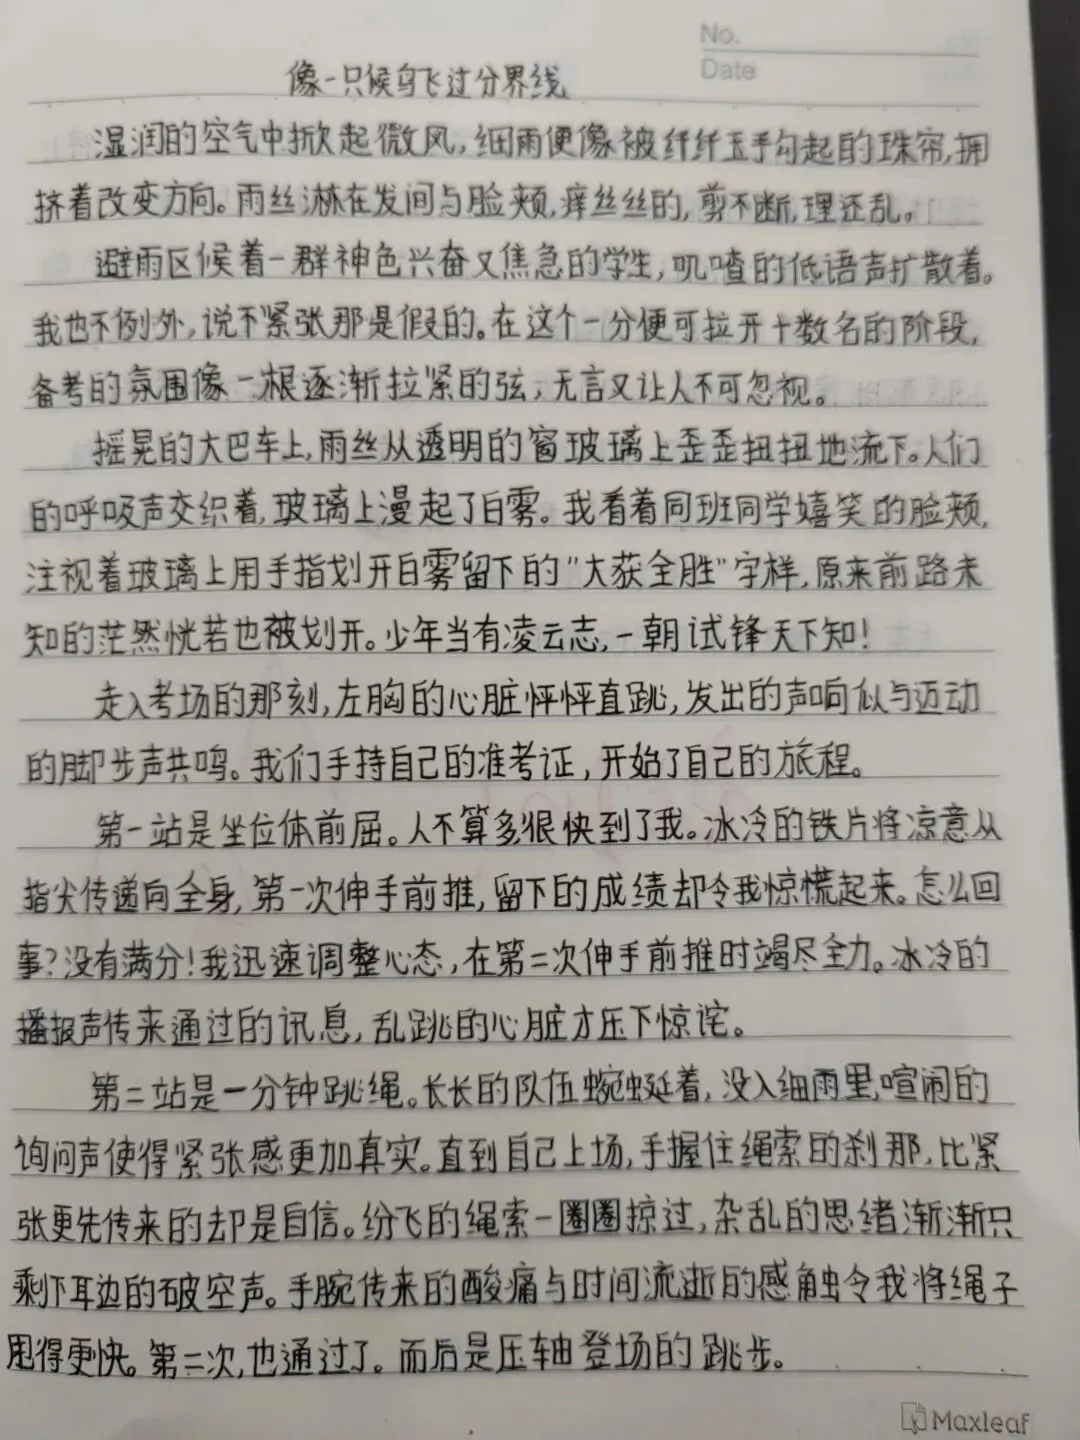 No.
Date
像一只候鸟飞过分界线
湿润的空气中掀起微风,细雨便像被纤纤玉手勾起的珠帘,拥
挤着改变方向。雨丝淋在发间与脸颊,痒丝丝的,剪不断,理还乱。
避雨区候着一群神色兴奋又焦急的学生,叽喳的低语声扩散着。
我也不例外,说不紧张那是假的。在这个一分便可拉开十数名的阶段,
备考的氛围像一根逐渐拉紧的弦,无言又让人不可忽视。
摇晃的大巴车上,雨丝从透明的窗玻璃上歪歪扭扭地流下。人们
的呼吸声交织着,玻璃上漫起了白雾。我看着同班同学嬉笑的脸颊,
注视着玻璃上用手指划开白雾留下的“大获全胜”字样,原来前路未
知的茫然恍若也被划开。少年当有凌云志,一朝试锋天下知!
走入考场的那刻,左胸的心脏怦怦直跳,发出的声响似与迈动
的脚步声共鸣。我们手持自己的准考证,开始了自己的旅程。
第一站是坐位体前屈。人不算多很快到了我。冰冷的铁片将凉意从
指尖传递向全身,第一次伸手前推,留下的成绩却令我惊慌起来。怎么回
事?没有满分!我迅速调整心态,在第二次伸手前推时竭尽全力。冰冷的
播报声传来通过的讯息,乱跳的心脏才压下惊诧。
第二站是一分钟跳绳。长长的队伍蜿蜒着,没入细雨里,喧闹的
询问声使得紧张感更加真实。直到自己上场,手握住绳索的刹那,比紧
张更先传来的却是自信。纷飞的绳索一圈圈掠过,杂乱的思绪渐渐只
剩下耳边的破空声。手腕传来的酸痛与时间流逝的感触令我将绳子
甩得更快。第二次,也通过了。而后是压轴登场的跳步。
Maxleaf